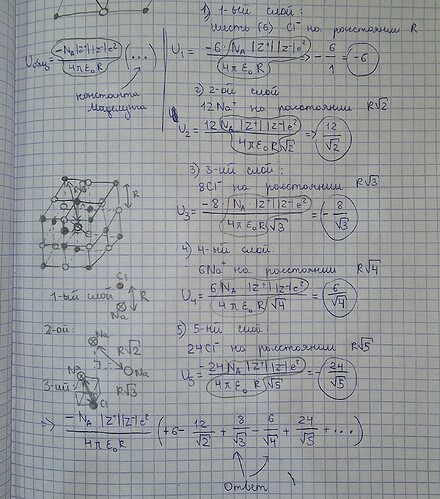 U общ = -N_A |z⁺||z⁻|e² / 4πε₀R (...)
константа
Маделунга
1) 1-ый слой:
шесть (6) Cl⁻ на расстоянии R
U₁ = -6 · N_A |z⁺||z⁻|e² / 4πε₀R ⇒ -6/1 = -6
2) 2-ой слой:
12 Na⁺ на расстоянии R√2
U₂ = 12 N_A |z⁺||z⁻|e² / 4πε₀R√2 ⇒ 12/√2
3) 3-ий слой:
8Cl⁻ на расстоянии R√3
U₃ = -8 · N_A |z⁺||z⁻|e² / 4πε₀R√3 = -8/√3
4) 4-ый слой:
6 Na⁺ на расстоянии R√4
U₄ = 6 N_A |z⁺||z⁻|e² / 4πε₀R√4 = 6/√4
5) 5-ый слой:
24 Cl⁻ на расстоянии R√5
U₅ = -24 N_A |z⁺||z⁻|e² / 4πε₀R√5 = -24/√5
R
Cl
1-ый слой
R
Na
2-ой:
Na
R√2
Na
Na
3-ий
R√3
Cl
⇒ -N_A |z⁺||z⁻|e² / 4πε₀R (+6 - 12/√2 + 8/√3 - 6/√4 + 24/√5 + ...)
Ответ